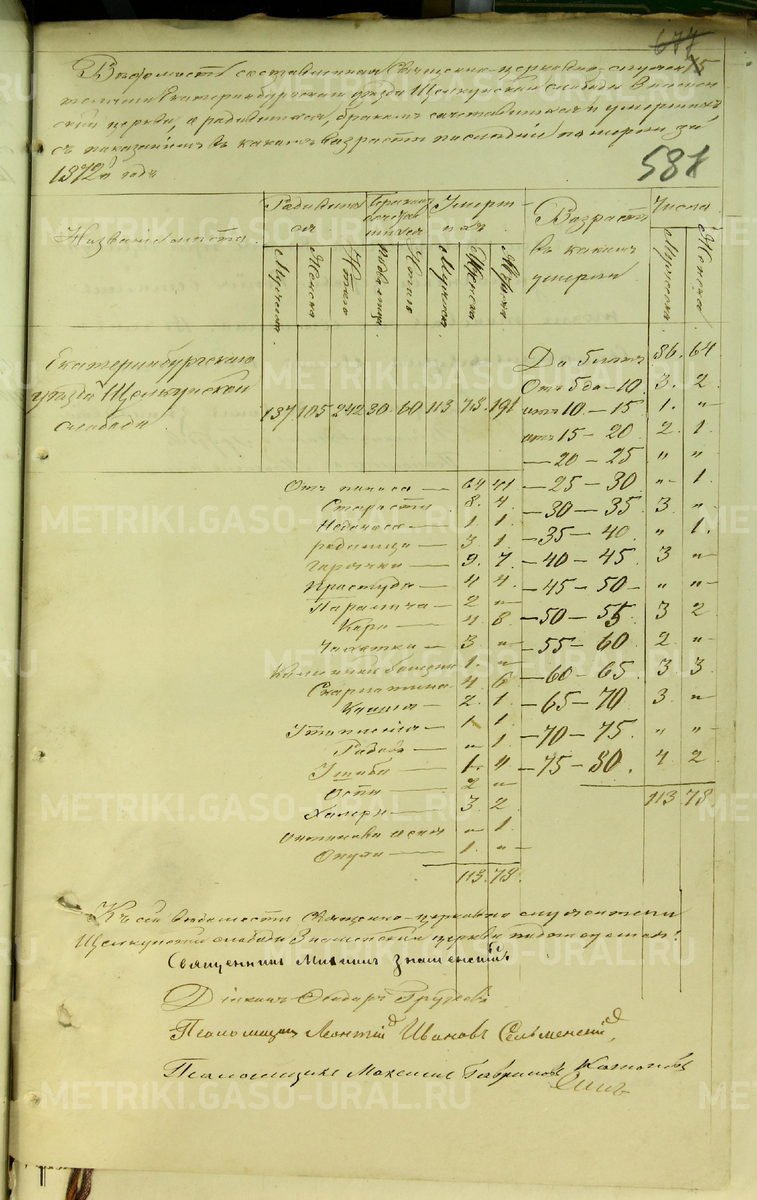 677
75
Ведомость составленная Священно-церковно-служи-
телями Екатеринбургскаго уезда Щелкунской слободы Знамен-
ской церкви, о родившихся, браком сочетавшихся и умерших
съ показанием въ каких возрасти последние померли за
1872й годъ
581
Название места.
Родивших
ся
Браком
сочетав
шихся
Умерш
их
Возрастъ
въ каких
умерли
Число
Мужеска.
Женска
Итого
Итого
Мужеска
Женска
Мужеска.
Женска.
Екатеринбургскаго
уезда Щелкунской
слободы
137 105 242 30 60 113 78 191
До 5 летъ 86. 64
Отъ 5 до 10. 3. 2
отъ 10. – 15 1. "
отъ 15 – 20 2. 1.
– 20 – 25 " "
– 25 – 30 " 1.
– 30 – 35 3 "
– 35 – 40 " 1.
– 40 – 45 3 "
– 45 – 50 " "
– 50 – 55 3 2
– 55 – 60 2 "
– 60 – 65 3 3
– 65 – 70 3 "
– 70 – 75 " "
– 75 – 80. 4 2
113 78
Отъ поноса — 64 41
Старости 8. 4.
1 1.
родимца — 3 1.
Горячки — 9. 7.
Простуда — 4 4.
Паралича — 2 "
Кори — 4 8.
Чахотки — 3 "
1. "
Скарлатина 4 6
Кашля — 2. 1.
1. 1
Родовъ — " 1.
Ушиба — 1. "
Оспы — 2 "
Холеры — 3. 2.
" 1.
1. "
113. 78.
Къ сей ведомости Священно-церковно служители
Щелкунской слободы Знаменской церкви подписуемся:
Священникъ Михаилъ Знаменский
Диаконъ
Псаломщикъ Леонтий Ивановъ Сельменский
Псаломщикъ Максимъ
METRIKI.GASO-URAL.RU